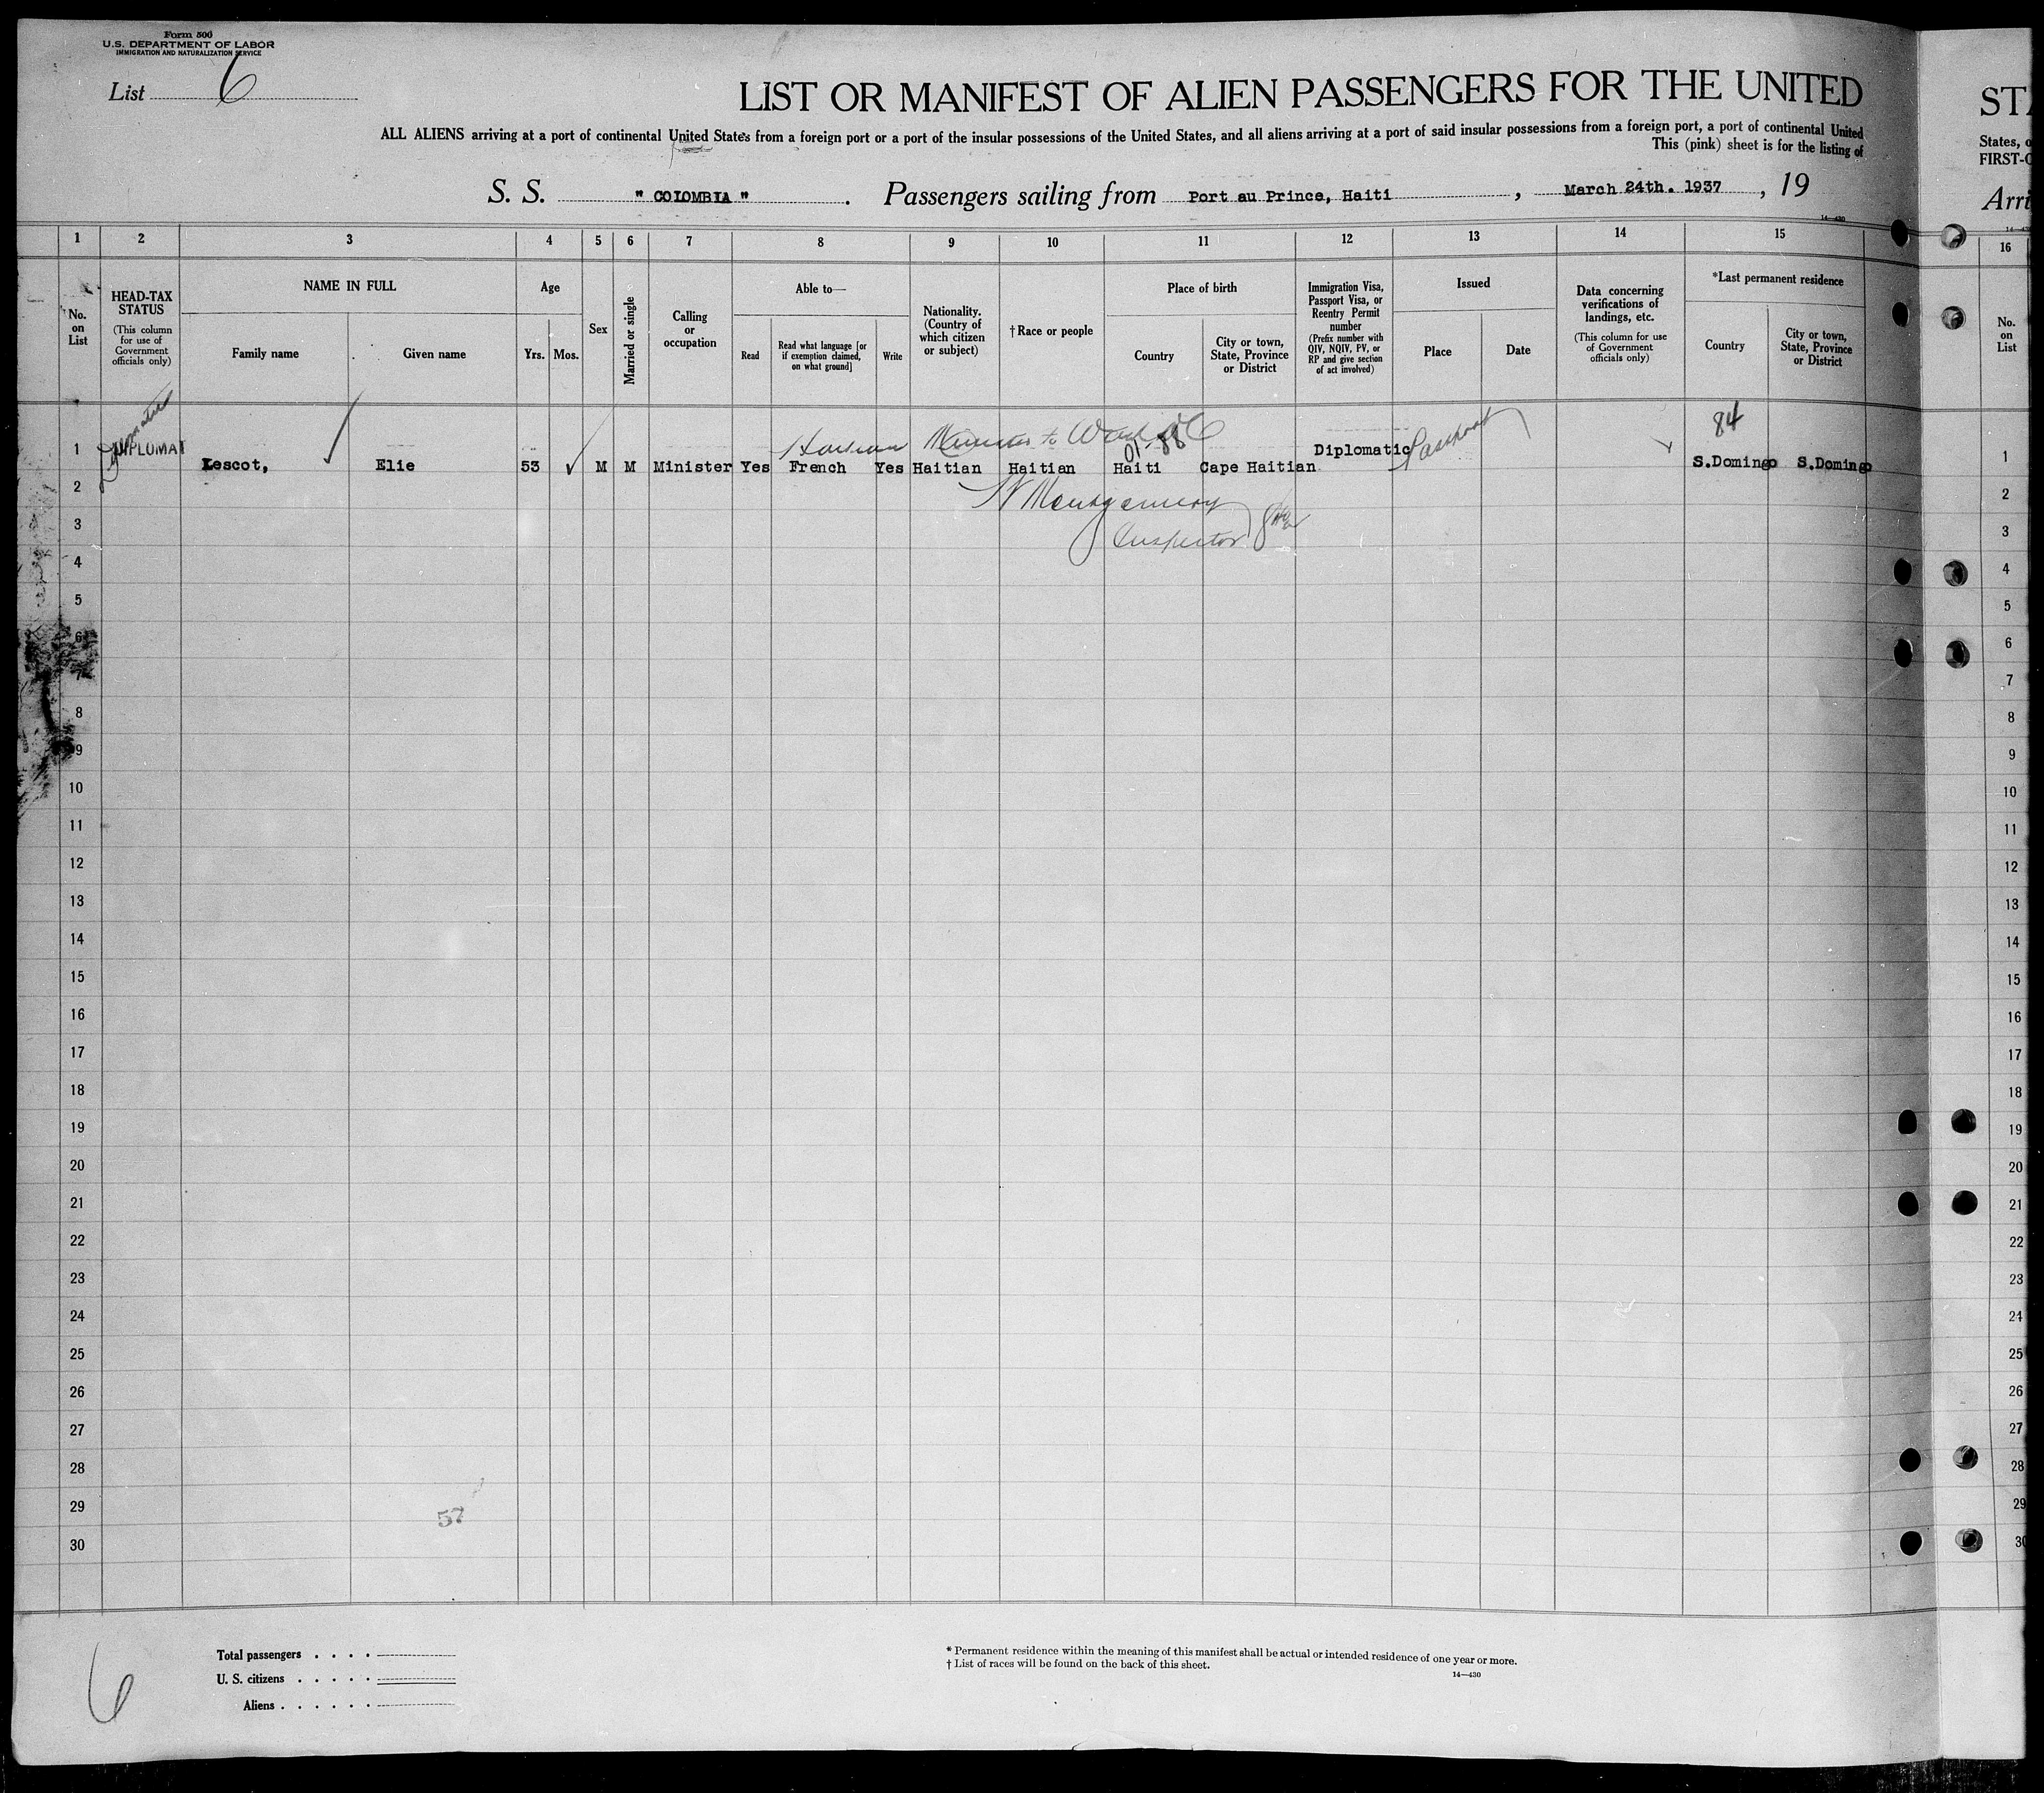 Form 500
U.S. DEPARTMENT OF LABOR
IMMIGRATION AND NATURALIZATION SERVICE
List 6
LIST OR MANIFEST OF ALIEN PASSENGERS FOR THE UNITED
STA
ALL ALIENS arriving at a port of continental United States from a foreign port or a port of the insular possessions of the United States, and all aliens arriving at a port of said insular possessions from a foreign port, a port of continental United
States, o
This (pink) sheet is for the listing of
FIRST-C
S. S. " COLOMBIA " . Passengers sailing from Port au Prince, Haiti , March 24th. 1937 , 19
Arri
14—430
1 2 3 4 5 6 7 8 9 10 11 12 13 14 15 16
No. on List
HEAD-TAX STATUS
(This column for use of Government officials only)
NAME IN FULL
Family name
Given name
Age
Yrs. Mos.
Sex
Married or single
Calling or occupation
Able to—
Read
Read what language [or if exemption claimed, on what ground]
Write
Nationality. (Country of which citizen or subject)
†Race or people
Place of birth
Country
City or town, State, Province or District
Immigration Visa, Passport Visa, or Reentry Permit number
(Prefix number with QIV, NQIV, PV, or RP and give section of act involved)
Issued
Place
Date
Data concerning verifications of landings, etc.
(This column for use of Government officials only)
*Last permanent residence
Country
City or town, State, Province or District
No. on List
84
Haitian Minister to Wash DC
01-88
1 DIPLOMAT Lescot, Elie 53 M M Minister Yes French Yes Haitian Haitian Haiti Cape Haitian Diplomatic Passport S.Domingo S.Domingo 1
2 2
Montgomery
3 3
Inspector
4 4
5 5
6 6
7 7
8 8
9 9
10 10
11 11
12 12
13 13
14 14
15 15
16 16
17 17
18 18
19 19
20 20
21 21
22 22
23 23
24 24
25 25
26 26
27 27
28 28
29 29
57
30 30
6
Total passengers . . . .
U. S. citizens . . . . .
Aliens . . . . . .
* Permanent residence within the meaning of this manifest shall be actual or intended residence of one year or more.
† List of races will be found on the back of this sheet.
14—430